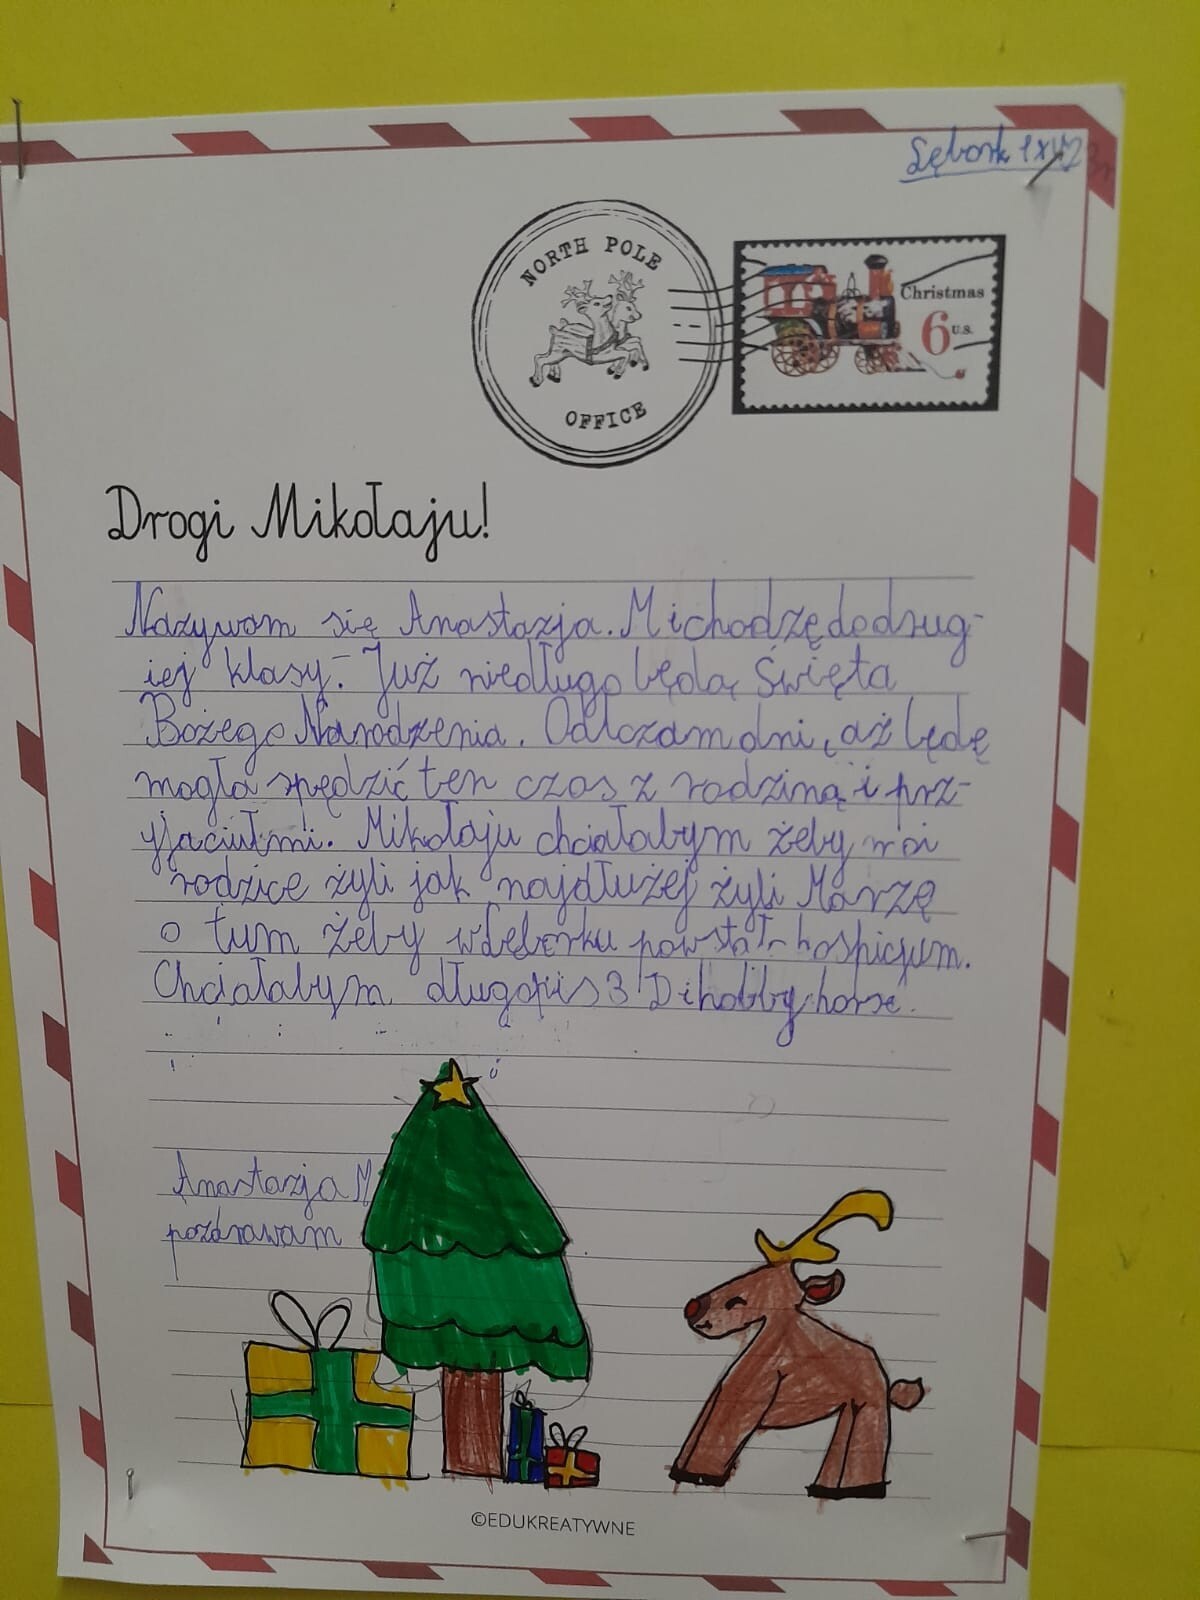 Lębork 1 XII 23r
NORTH POLE
OFFICE
Christmas
6 U.S.
Drogi Mikołaju!
Nazywam się Anastazja. M i chodzę do drug-
iej klasy. Już niedługo będą Święta
Bożego Narodzenia. Odliczam dni, aż będę
mogła spędzić ten czas z rodziną i prz-
yjaciułmi. Mikołaju chciałabym żeby moi
rodzice żyli jak najdłużej żyli Marzę
o tum żeby w Lęborku powstał hospicjum.
Chciałabym długopis 3D i hobby horse.
Anastazja M
pozdrawam
©EDUKREATYWNE